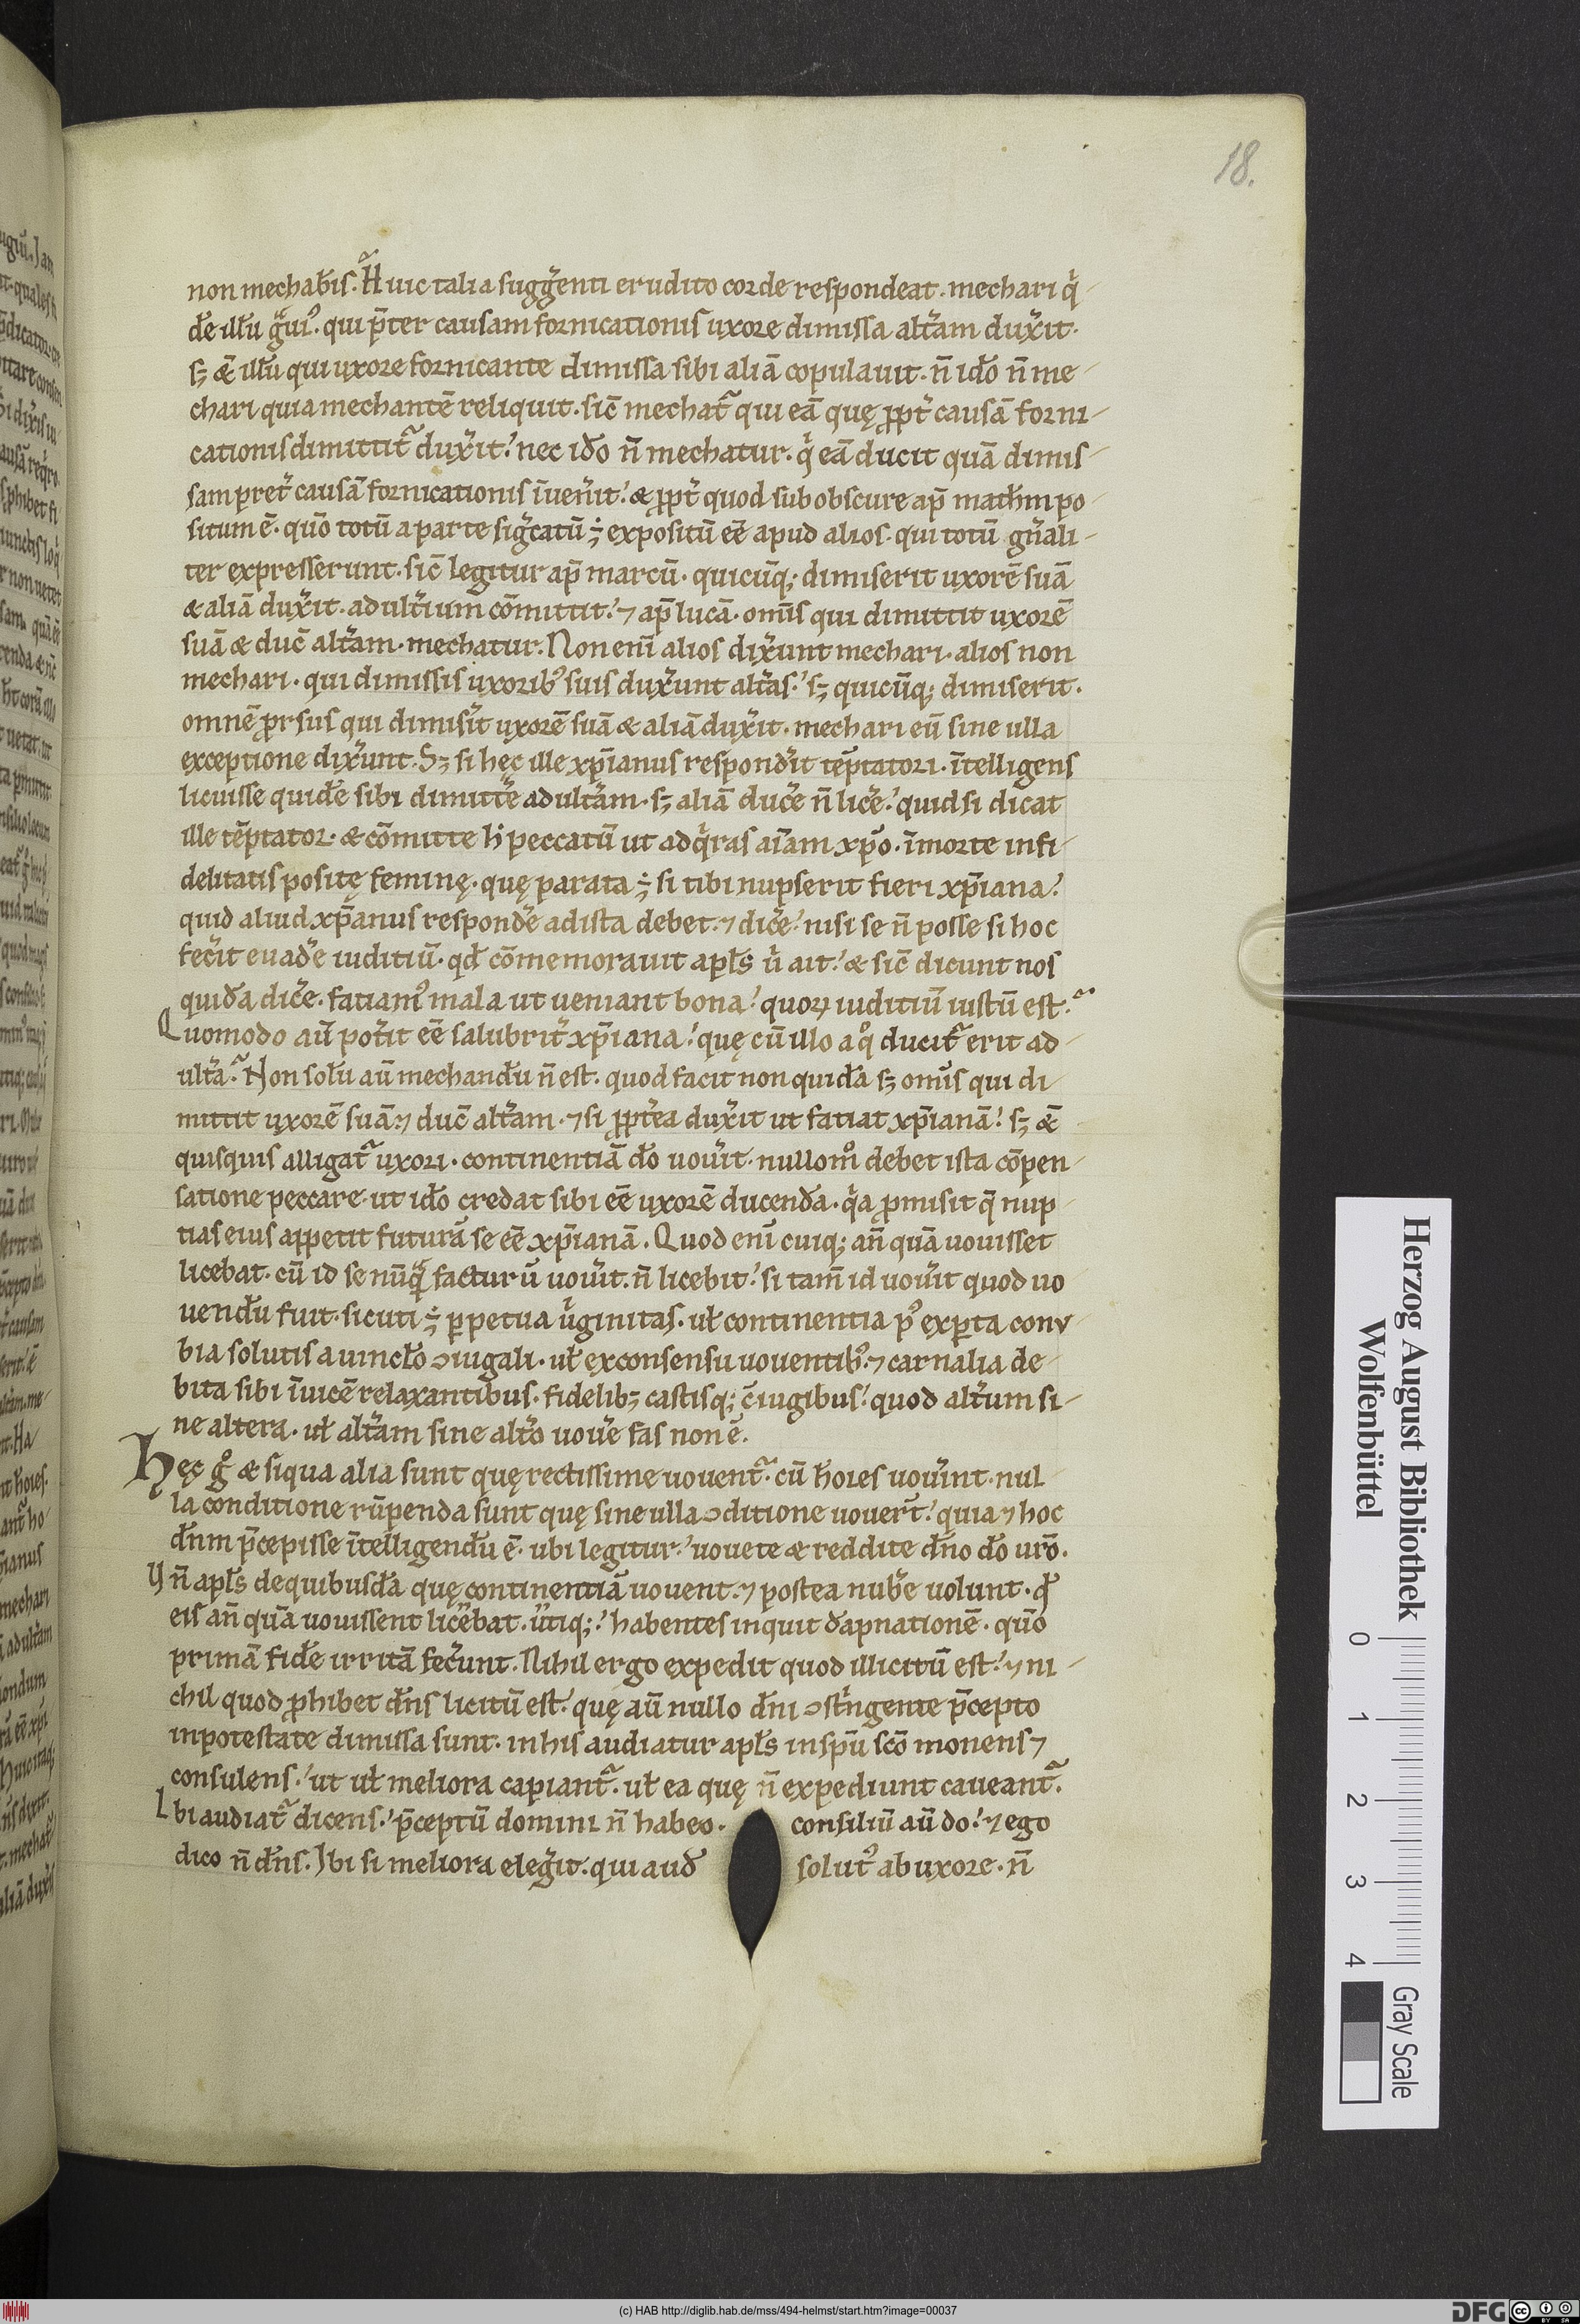 18.
non mechab̄is. Huic talia sugg̃enti erudito corde respondeat. mechari q̍
de illū g̃ui⁹. qui p̄ter causam fornicationis uxore dimissa alt̃am dux̃it.
sꝫ & illū qui uxore fornicante dimissa sibi aliā copulauit. n̄ idō n̄ me
chari quia mechantē reliquit. sic̄ mechat̃ qui eā quę ꝓpt̃ causā forni
cationis dimittit̃ dux̃it. nec idō n̄ mechatur. q̍ eā ducit quā dimis
sam pret̃ causā fornicationis īuen̄it. & ꝓpt̃ quod subobscure ap̄ math̄m po
situm ē. quō totū a parte sig̃catū ÷ expositū eē apud alios. qui totū gn̄ali
ter expresserunt. sic̄ legitur ap̄ marcū. quicūq; dimiserit uxorē suā
& aliā dux̃it. adult̃ium cōmittit. ⁊ ap̄ lucā. omīs qui dimittit uxorē
suā & duc̄ alt̃am. mechatur. Non enī alios dix̃unt mechari. alios non
mechari. qui dimissis uxorib⁹ suis dux̃unt alt̃as. sꝫ quicūq; dimiserit.
omnē ꝓrsus qui dimis̃it uxorē suā & aliā dux̃it. mechari eū sine ulla
exceptione dix̃unt. Sꝫ si hęc ille xp̄ianus respond̃it tēptatori. ītelligens
licuisse quidē sibi dimitt̃e adult̃am. sꝫ aliā duc̃e n̄ lic̃e. quid si dicat
ille tēptator. & cōmitte h̍ peccatū ut adq̍ras aīam xp̄o. ī morte infi
delitatis positę feminę. quę parata ÷ si tibi nupserit fieri xp̄iana.
quid aliud xp̄anus respond̃e ad ista debet. ⁊ dic̃e. nisi se n̄ posse si hoc
fec̃it euad̃e iuditiū. qđ cōmemorauit apl̄s ũ ait. & sic̄ dicunt nos
quidā dic̃e. fatiam⁹ mala ut ueniant bona. quoꝝ iuditiū iustū est.
Quomodo aū pot̃it eē salubrit̃ xp̄iana. quę cū illo a q̊ ducit̃ erit ad
ult̃a. Non solū aū mechandū n̄ est. quod facit non quidā sꝫ omīs qui di
mittit uxorē suā ⁊ duc̄ alt̃am. ⁊ si ꝓpt̃ea dux̃it ut fatiat xp̄ianā. sꝫ &
quisquis alligat̃ uxori. continentiā dō uoũit. nullom̊ debet ista cōpen
satione peccare ut idō credat sibi eē uxorē ducendā. q̍a ꝓmisit q̄ nup
tias eius appetit futurā se eē xp̄ianā. Quod enī cuiq; an̄ quā uouisset
licebat. cū id se nūq̃ facturū uoũit. n̄ licebit. si tam̄ id uoũit quod uo
uendū fuit. sicuti ÷ ꝑpetua ũginitas. ut̃ continentia p⁹ exꝑta conu
bia solutis a uinclō ꝯiugali. ut̃ ex consensu uouentib⁹. ⁊ carnalia de
bita sibi īuicē relaxantibus. fidelibꝫ castisq; c̄iugibus. quod alt̃um si
ne altera. ut̃ alt̃am sine alt̃o uoũe fas non ē.
Hęc g̊ & siqua alia sunt quę rectissime uouent̃. cū hōies uoũint. nul
la conditione rūpenda sunt quę sine ulla ꝯditione uouer̄t. quia ⁊ hoc
dn̄m p̄cepisse ītelligendū ē. ubi legitur. uouete & reddite dn̄o dō uro̅.
Vn̄ apl̄s de quibusdā quę continentiā uouent. ⁊ postea nub̃e uolunt. qđ
eis an̄ quā uouissent licebat. utiq;. habentes inquit dāpnationē. quō
primā fidē irritā fec̃unt. Nihil ergo expedit quod illicitū est. ⁊ ni
chil quod ꝓhibet dn̄s licitū est. quę aū nullo dn̄i ꝯst̍ngente p̄cepto
in potestate dimissa sunt. in his audiatur apl̄s in sp̄u scō monens ⁊
consulens. ut ut̃ meliora capiant̃. ut̃ ea quę n̄ expediunt caueant̃.
Ibi audiat̃ dicens. p̄ceptū domini n̄ habeo. consiliū aū do. ⁊ ego
dico n̄ dn̄s. Ibi si meliora eleg̃it. qui aud̄ solut⁹ ab uxore. n̄
Herzog August Bibliothek
Wolfenbüttel
0 1 2 3 4
Gray Scale
(c) HAB http://diglib.hab.de/mss/494-helmst/start.htm?image=00037
DFG